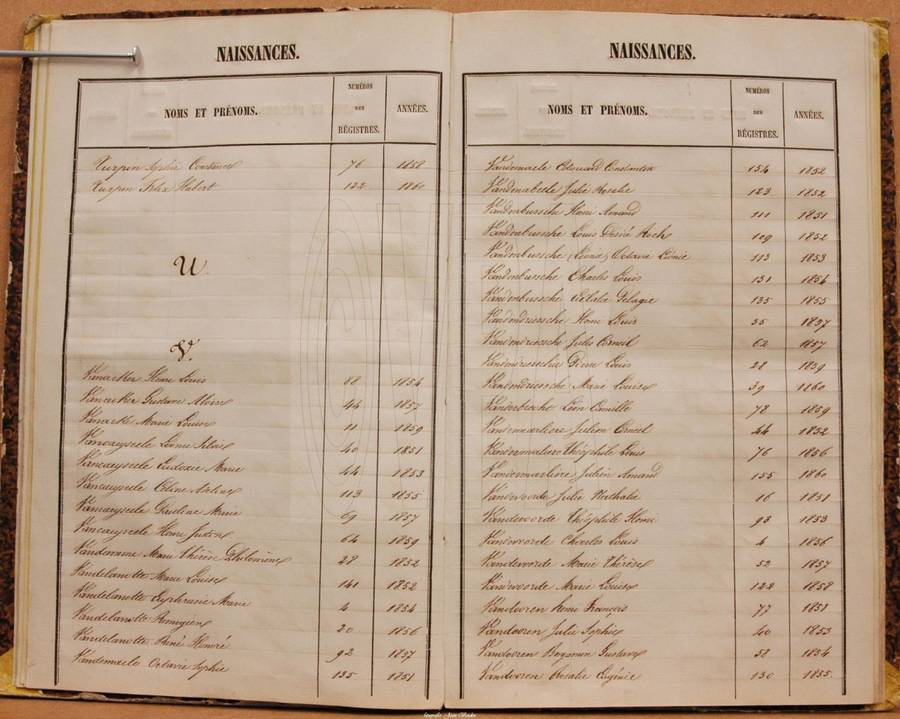 NAISSANCES.
NOMS ET PRÉNOMS. NUMÉROS DES RÉGISTRES. ANNÉES.
Turpin Sophie Constance 76 1858
Turpin Félix Hubert 122 1860
U.
V.
Vanacker Henri Louis 88 1854
Vanacker Gustave 44 1857
Marie Louise 11 1859
Vancayseele 40 1851
Vancayseele Eudoxie Marie 44 1853
Vancayseele Céline 113 1855
Vancayseele Pauline Marie 69 1857
Vancayseele Henri 64 1859
Marie Thérèse Philomène 28 1852
Vandelanotte Marie Louise 141 1852
Vandelanotte Euphrasie Marie 4 1854
Vandelanotte 20 1856
Vandelanotte René Honoré 92 1857
Vandemaele Octavie Sophie 135 1851
NAISSANCES.
NOMS ET PRÉNOMS. NUMÉROS DES RÉGISTRES. ANNÉES.
Vandemaele Edouard Constantin 134 1852
Vandenabeele Julie Rosalie 123 1852
Vandenbussche Henri Amand 111 1851
Vandenbussche Louis Désiré 109 1852
Vandenbussche Octavie 113 1853
Vandenbussche Charles Louis 131 1854
Vandenbussche Pélagie 135 1855
Vandendriessche Henri Louis 35 1857
Vandendriessche Jules Ernest 62 1857
Vandendriessche Louis 28 1859
Vandendriessche Marie Louise 39 1860
Léon Camille 78 1859
Vandermarliere Julien Ernest 44 1852
Vandermarliere Théophile Louis 76 1856
Vandermarliere Julien Amand 155 1860
Vandevoorde Julie Nathalie 16 1851
Vandevoorde Théophile Henri 93 1853
Vandevoorde Charles Louis 4 1856
Vandevoorde Marie Thérèse 52 1857
Vandevoorde Marie Louise 122 1858
Vandooren Henri François 77 1851
Vandooren Julie Sophie 40 1853
Vandooren Gustave 58 1854
Vandooren Rosalie Eugénie 130 1855